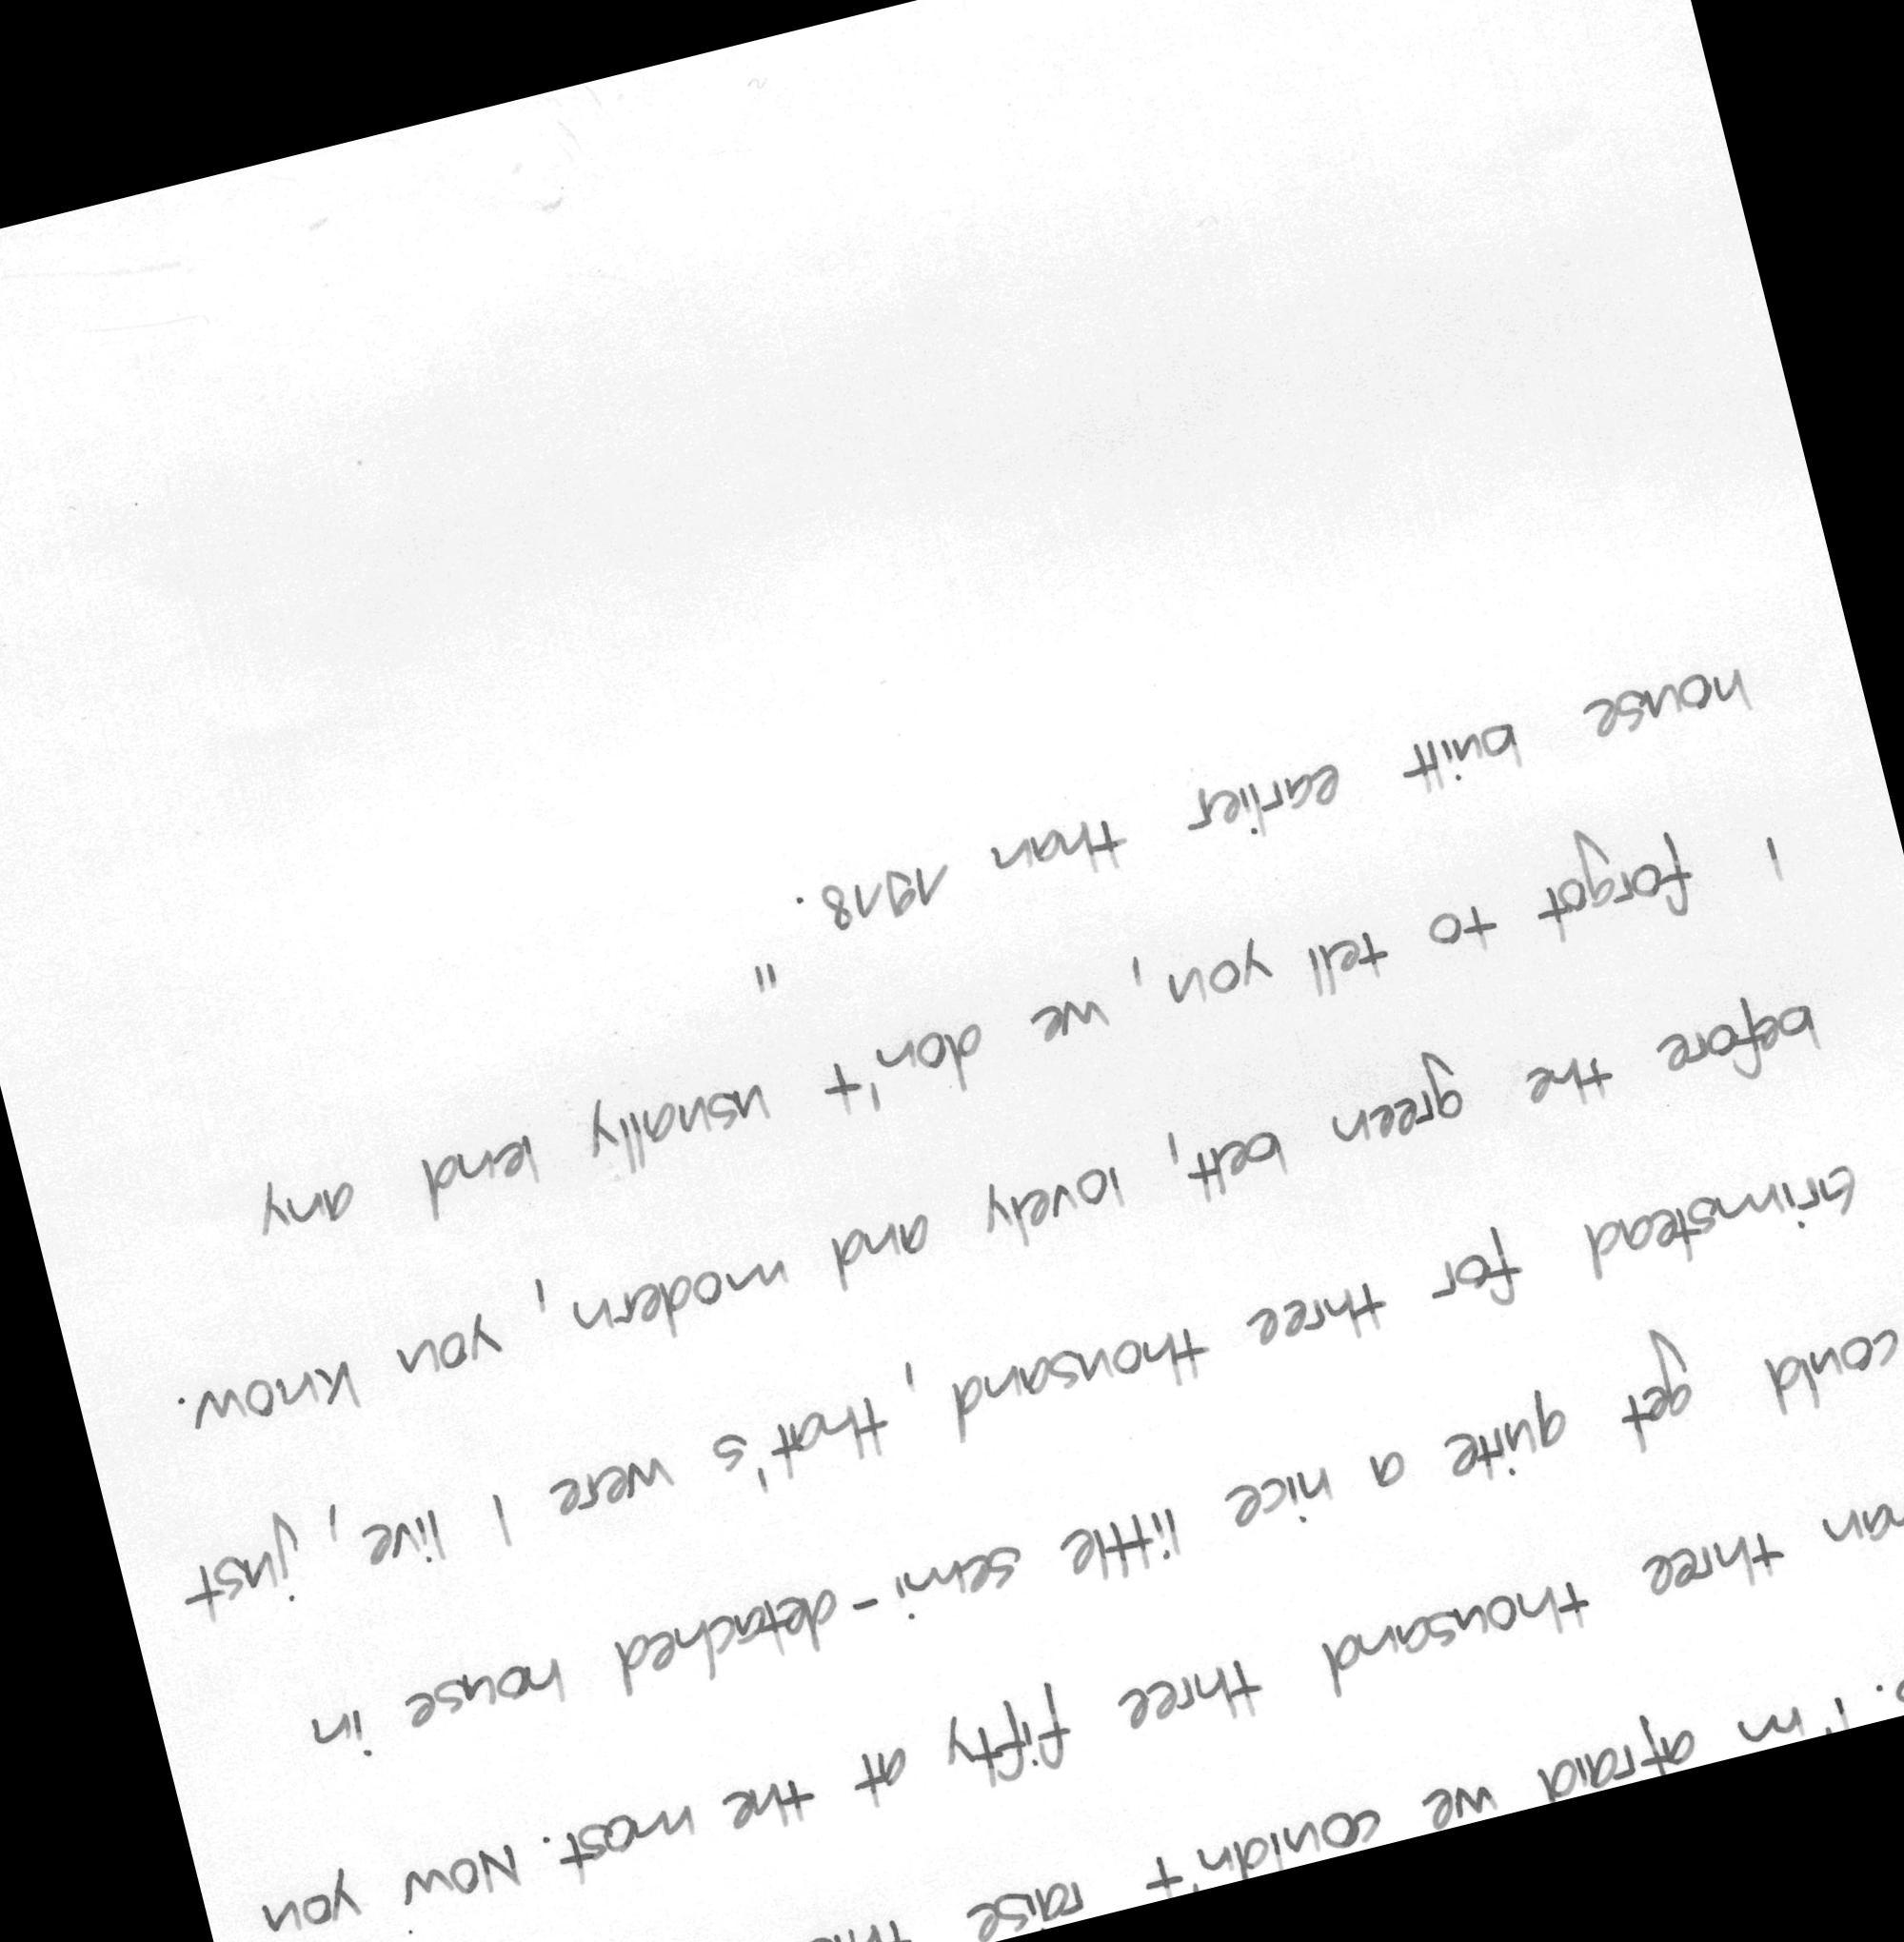 I'm afraid we couldn't raise
three thousand three fifty at the most. Now you
could get quite a nice little semi-detached house in
Grimstead for three thousand, that's were I live, just
before the green belt, lovely and modern, you know.
I forgot to tell you, we don't usually lend any
house built earlier than 1918."